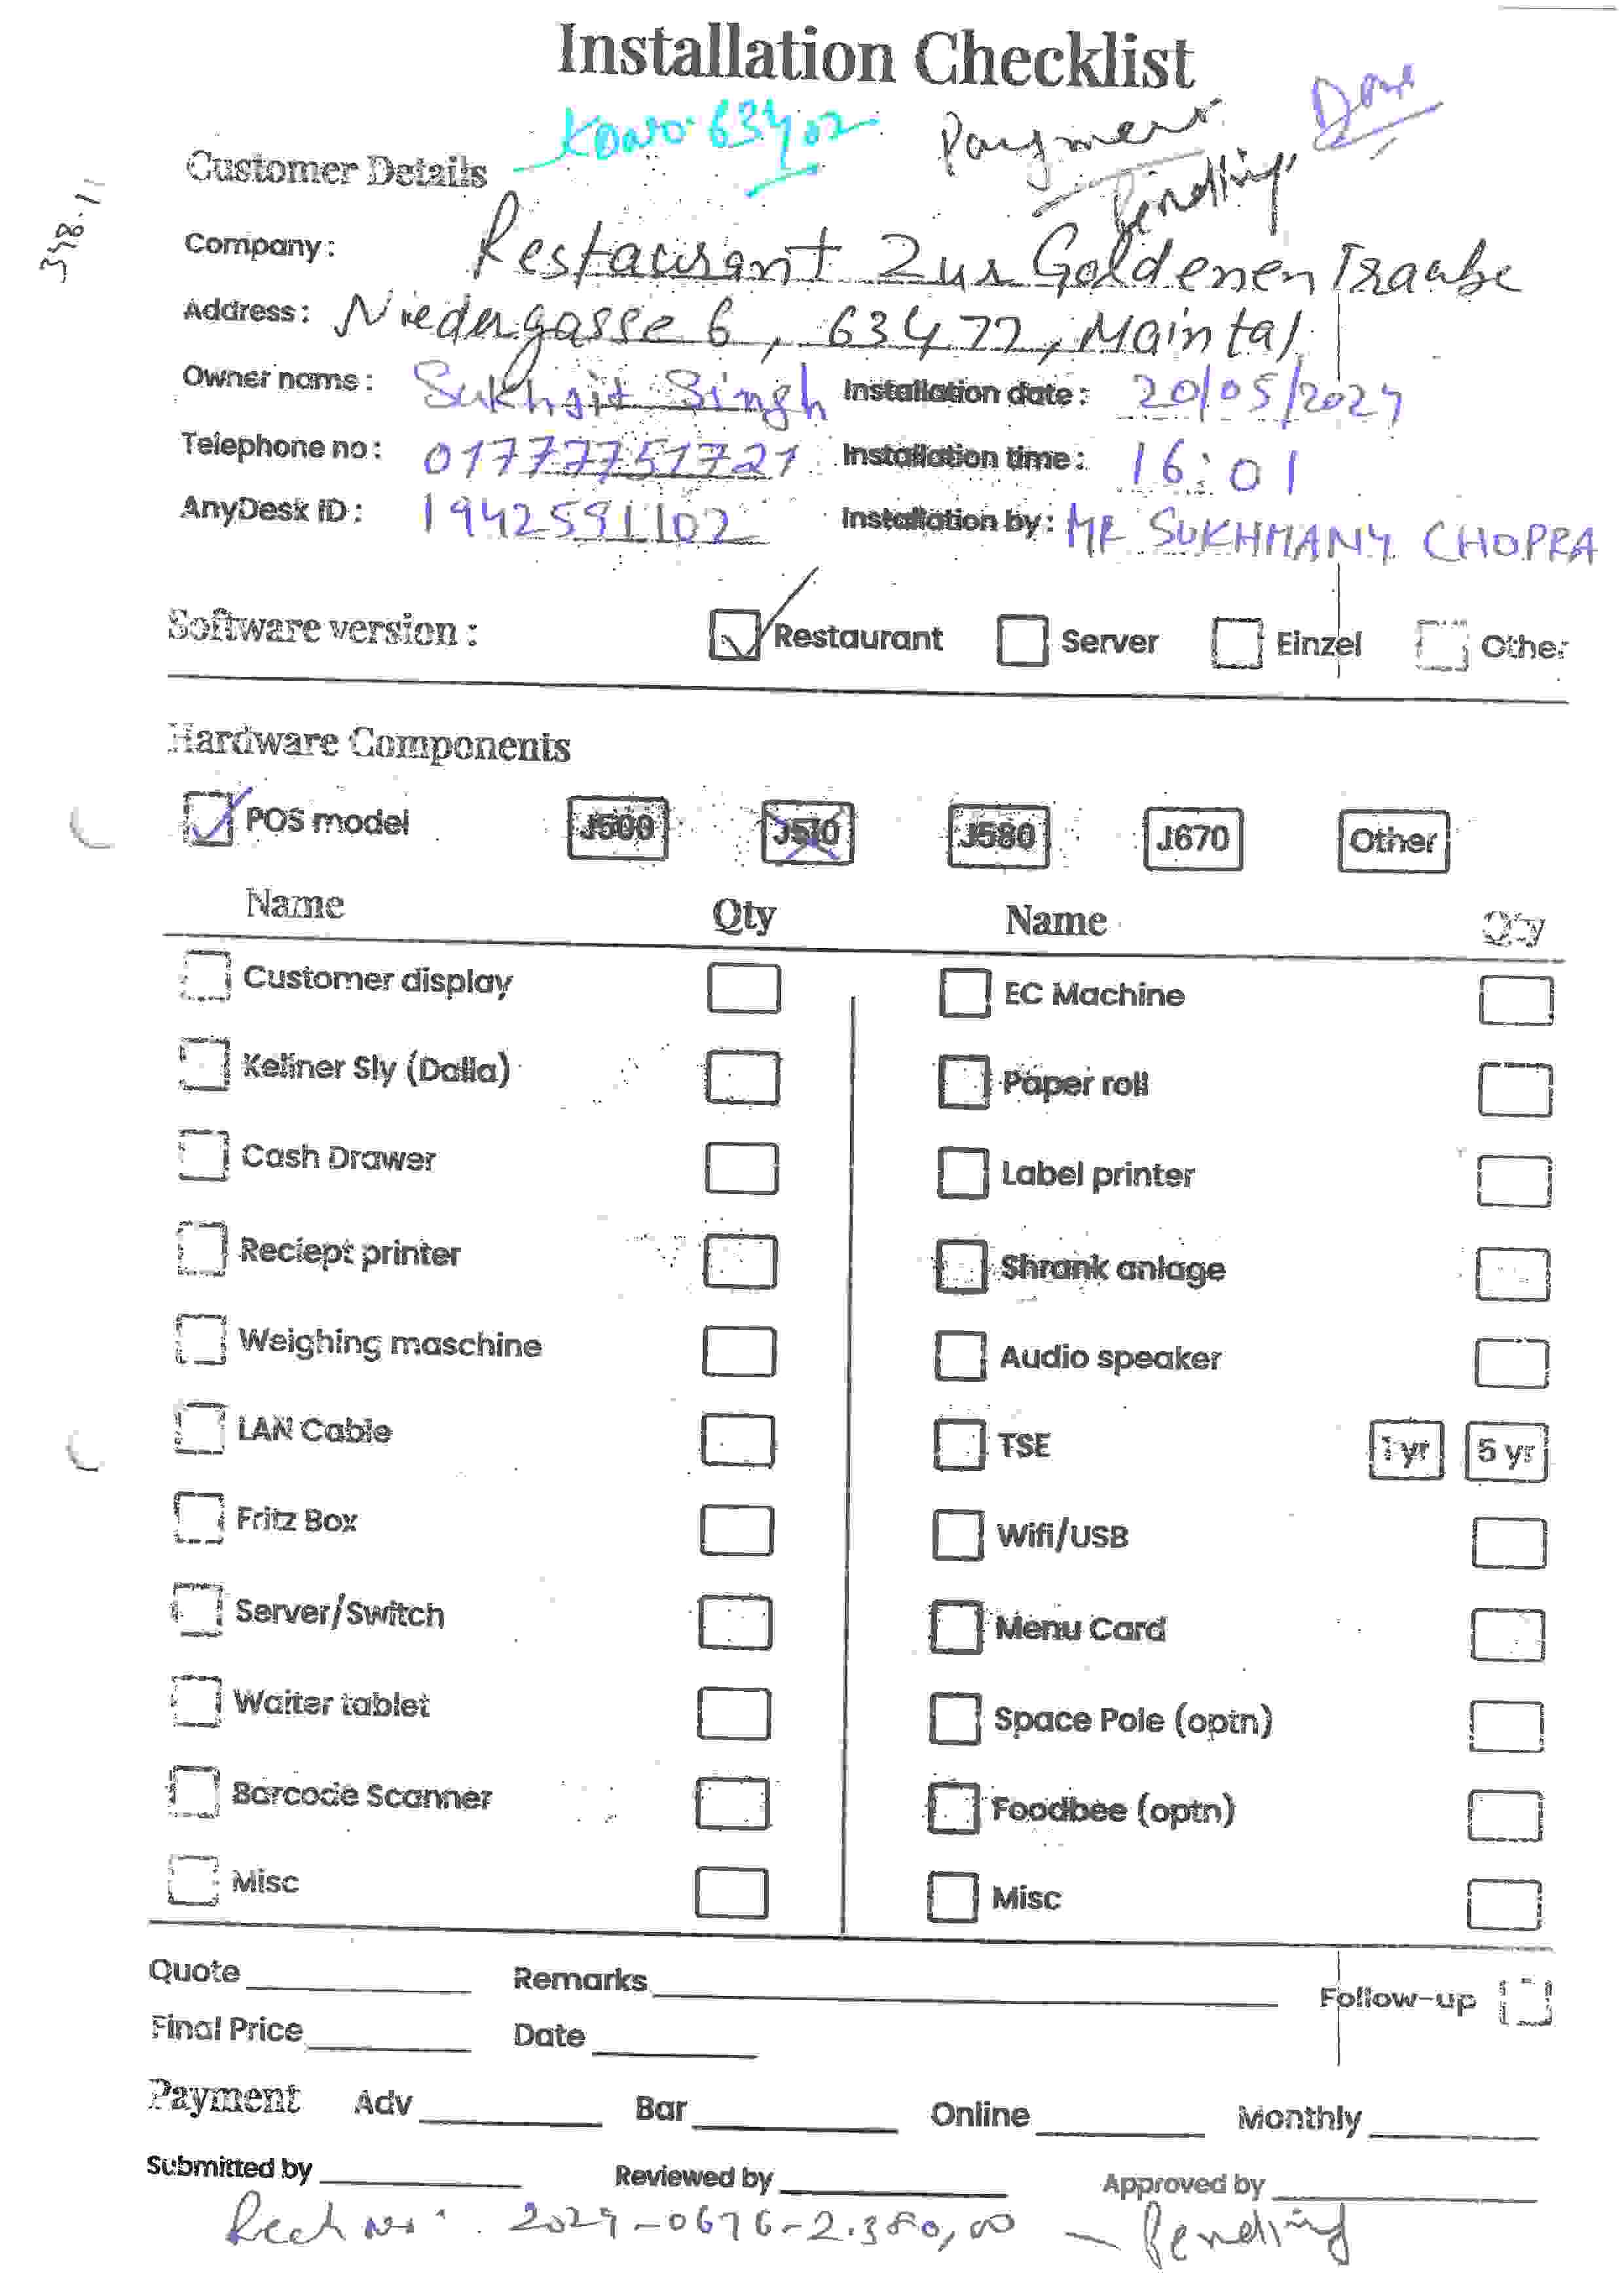 Installation Checklist
Payment Done
Pending
Customer Details
348.11
Company: Restaurant Zur Goldenen Traube
Address: Niedergasse 6, 63477, Maintal
Owner name: Sukhjit Singh Installation date: 20/05/2024
Telephone no: 01777751721 Installation time: 16:01
AnyDesk ID: 1942591102 Installation by: MR SUKHMANY CHOPRA
Software version: Restaurant Server Einzel Other
Hardware Components
POS model J500 J510 J580 J670 Other
Name Qty Name Qty
Customer display EC Machine
Kellner Sly (Dalla) Paper roll
Cash Drawer Label printer
Reciept printer Shrank anlage
Weighing maschine Audio speaker
LAN Cable TSE 1 yr 5 yr
Fritz Box Wifi/USB
Server/Switch Menu Card
Waiter tablet Space Pole (optn)
Barcode Scanner Foodbee (optn)
Misc Misc
Quote Remarks Follow-up
Final Price Date
Payment Adv Bar Online Monthly
Submitted by Reviewed by Approved by
Rech Nr: 2024-0676-2.380,00 - Pending